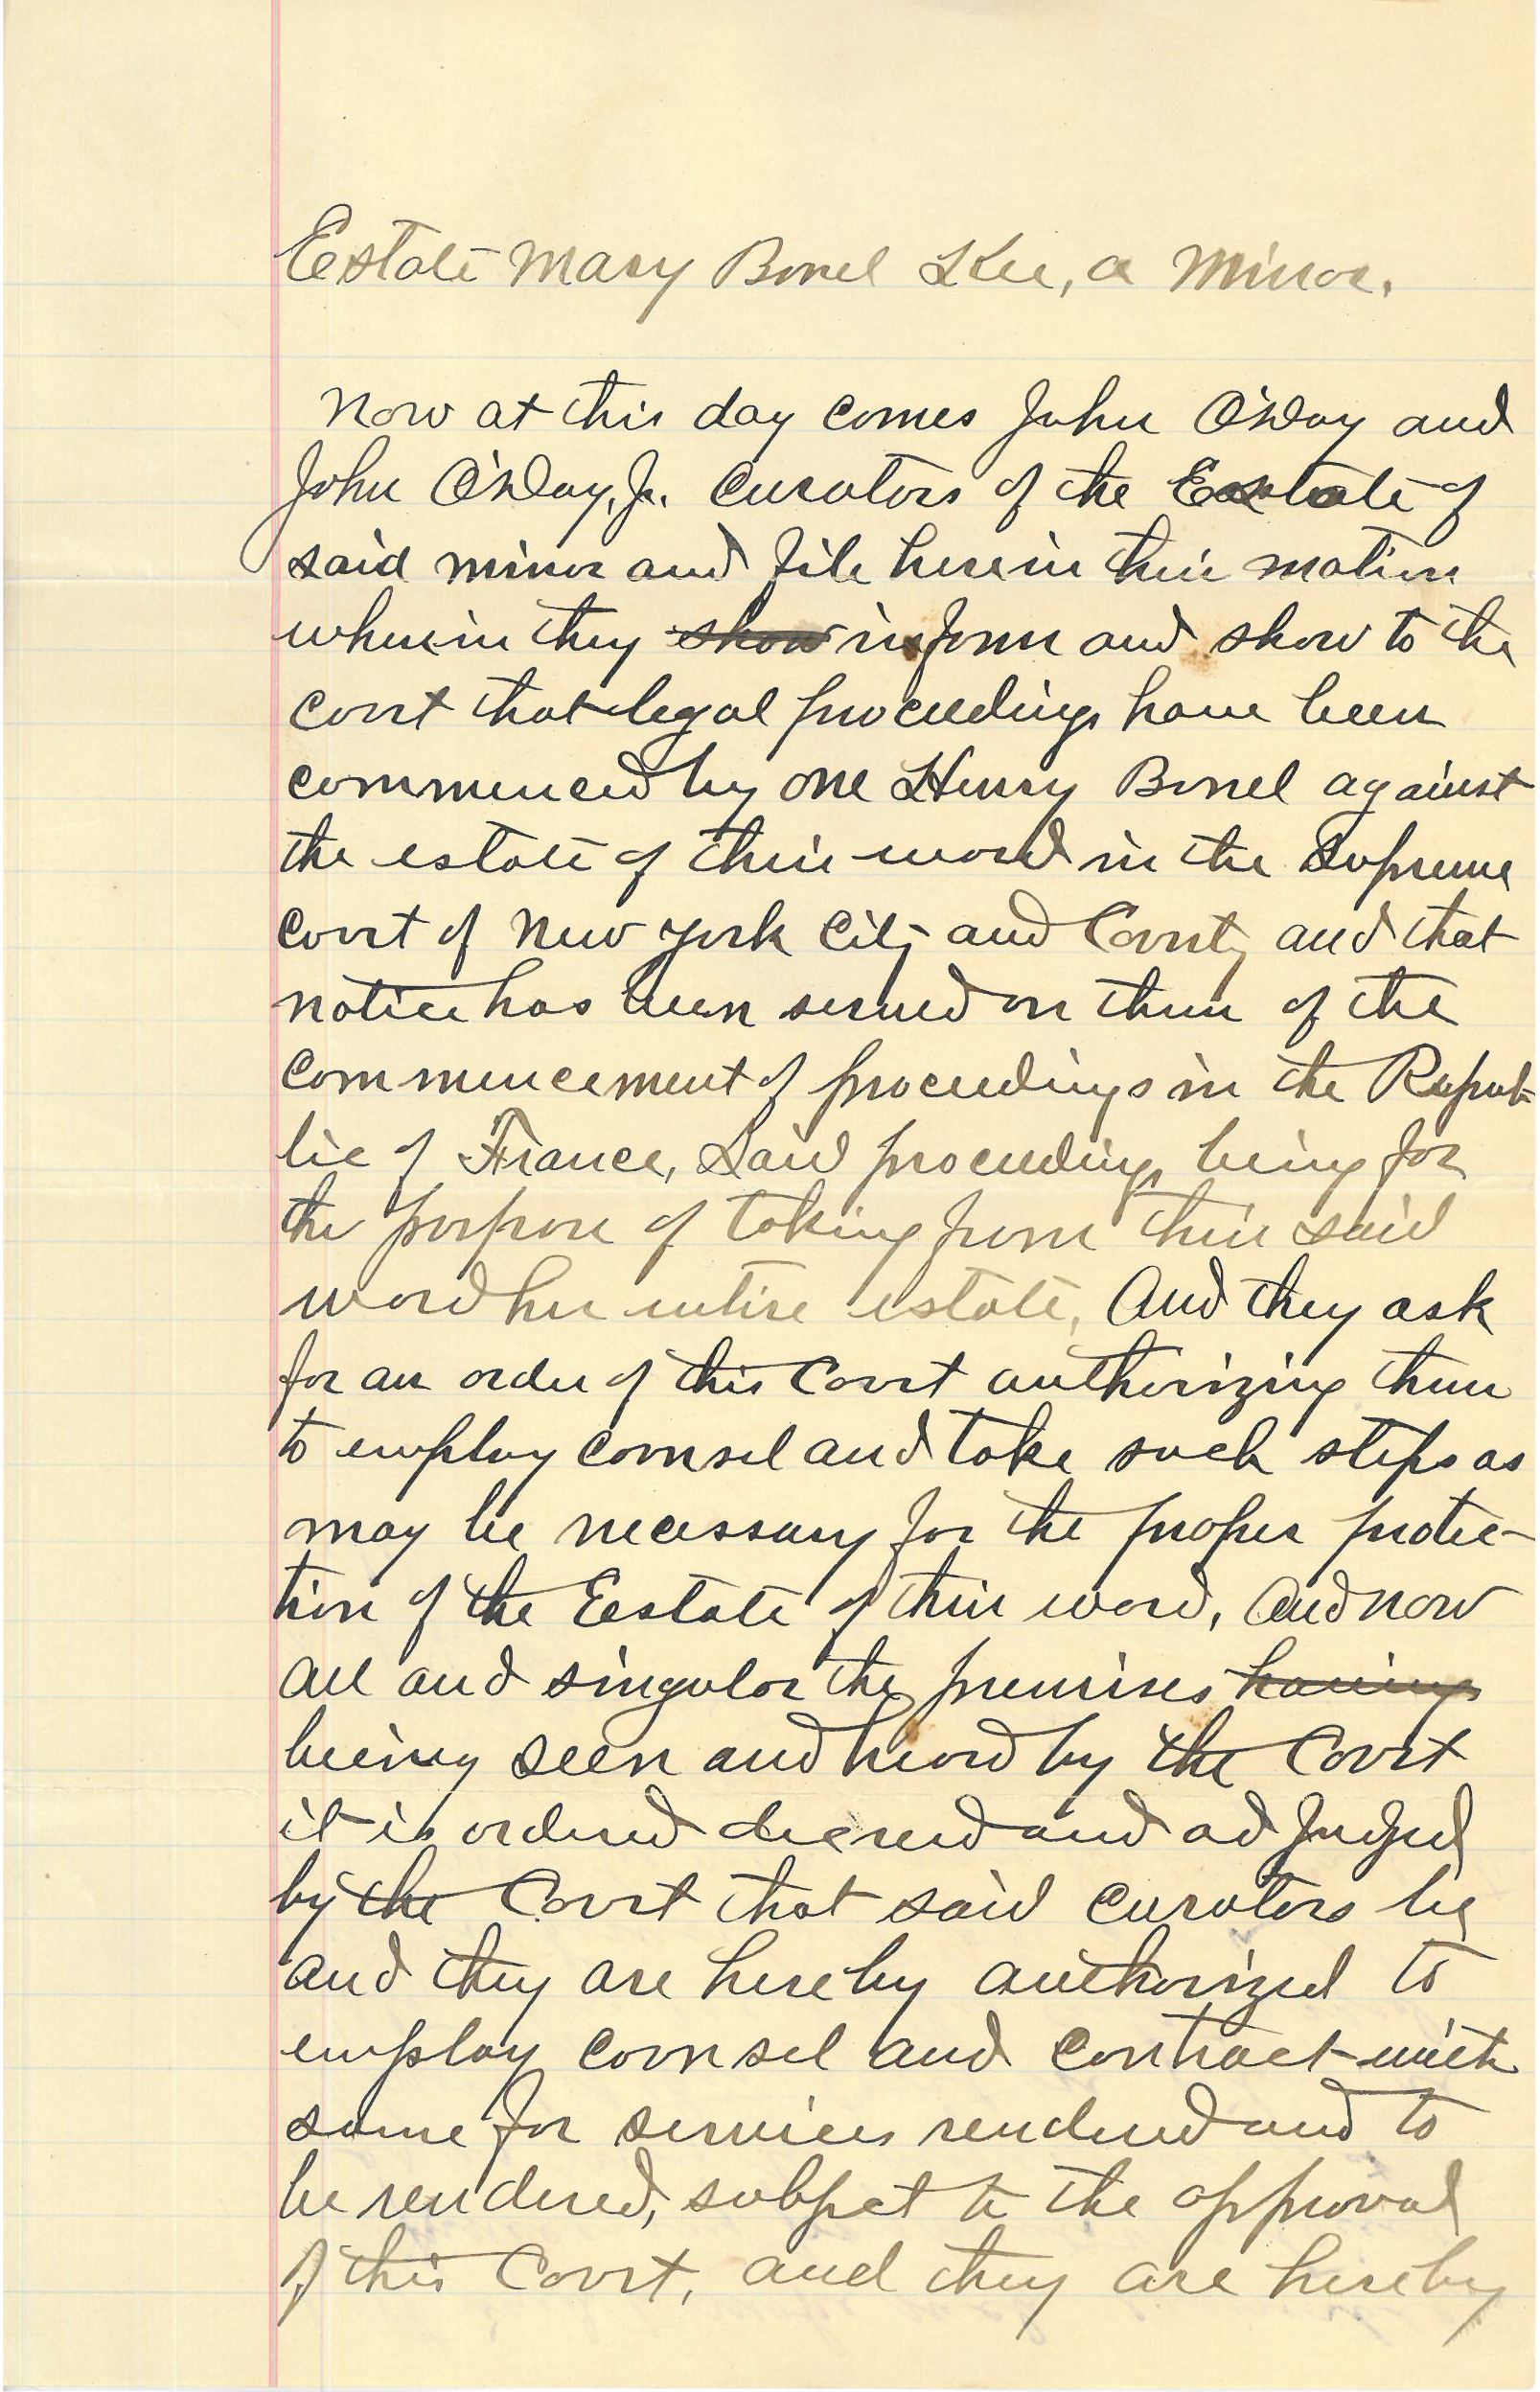 Estate Mary Bonel Kee, a Minor.
Now at this day comes John O'Day and
John O'Day, Jr. Curators of the Estate of
said minor and file herein their motion
wherein they show inform and show to the
Court that legal proceedings have been
commenced by one Henry Bonel against
the estate of their ward in the Supreme
Court of New York City and County and that
notice has been served on them of the
commencement of proceedings in the Repub-
lic of France, Said proceedings being for
the purpose of taking from their said
ward her entire estate, And they ask
for an order of this Court authorizing them
to employ counsel and take such steps as
may be necessary for the proper protec-
tion of the Estate of their ward, And now
all and singular the premises having
being seen and heard by the Court
it is ordered decreed and adjudged
by the Court that said curators be
and they are hereby authorized to
employ counsel and contract with
same for services rendered and to
be rendered, subject to the approval
of this Court, and they are hereby